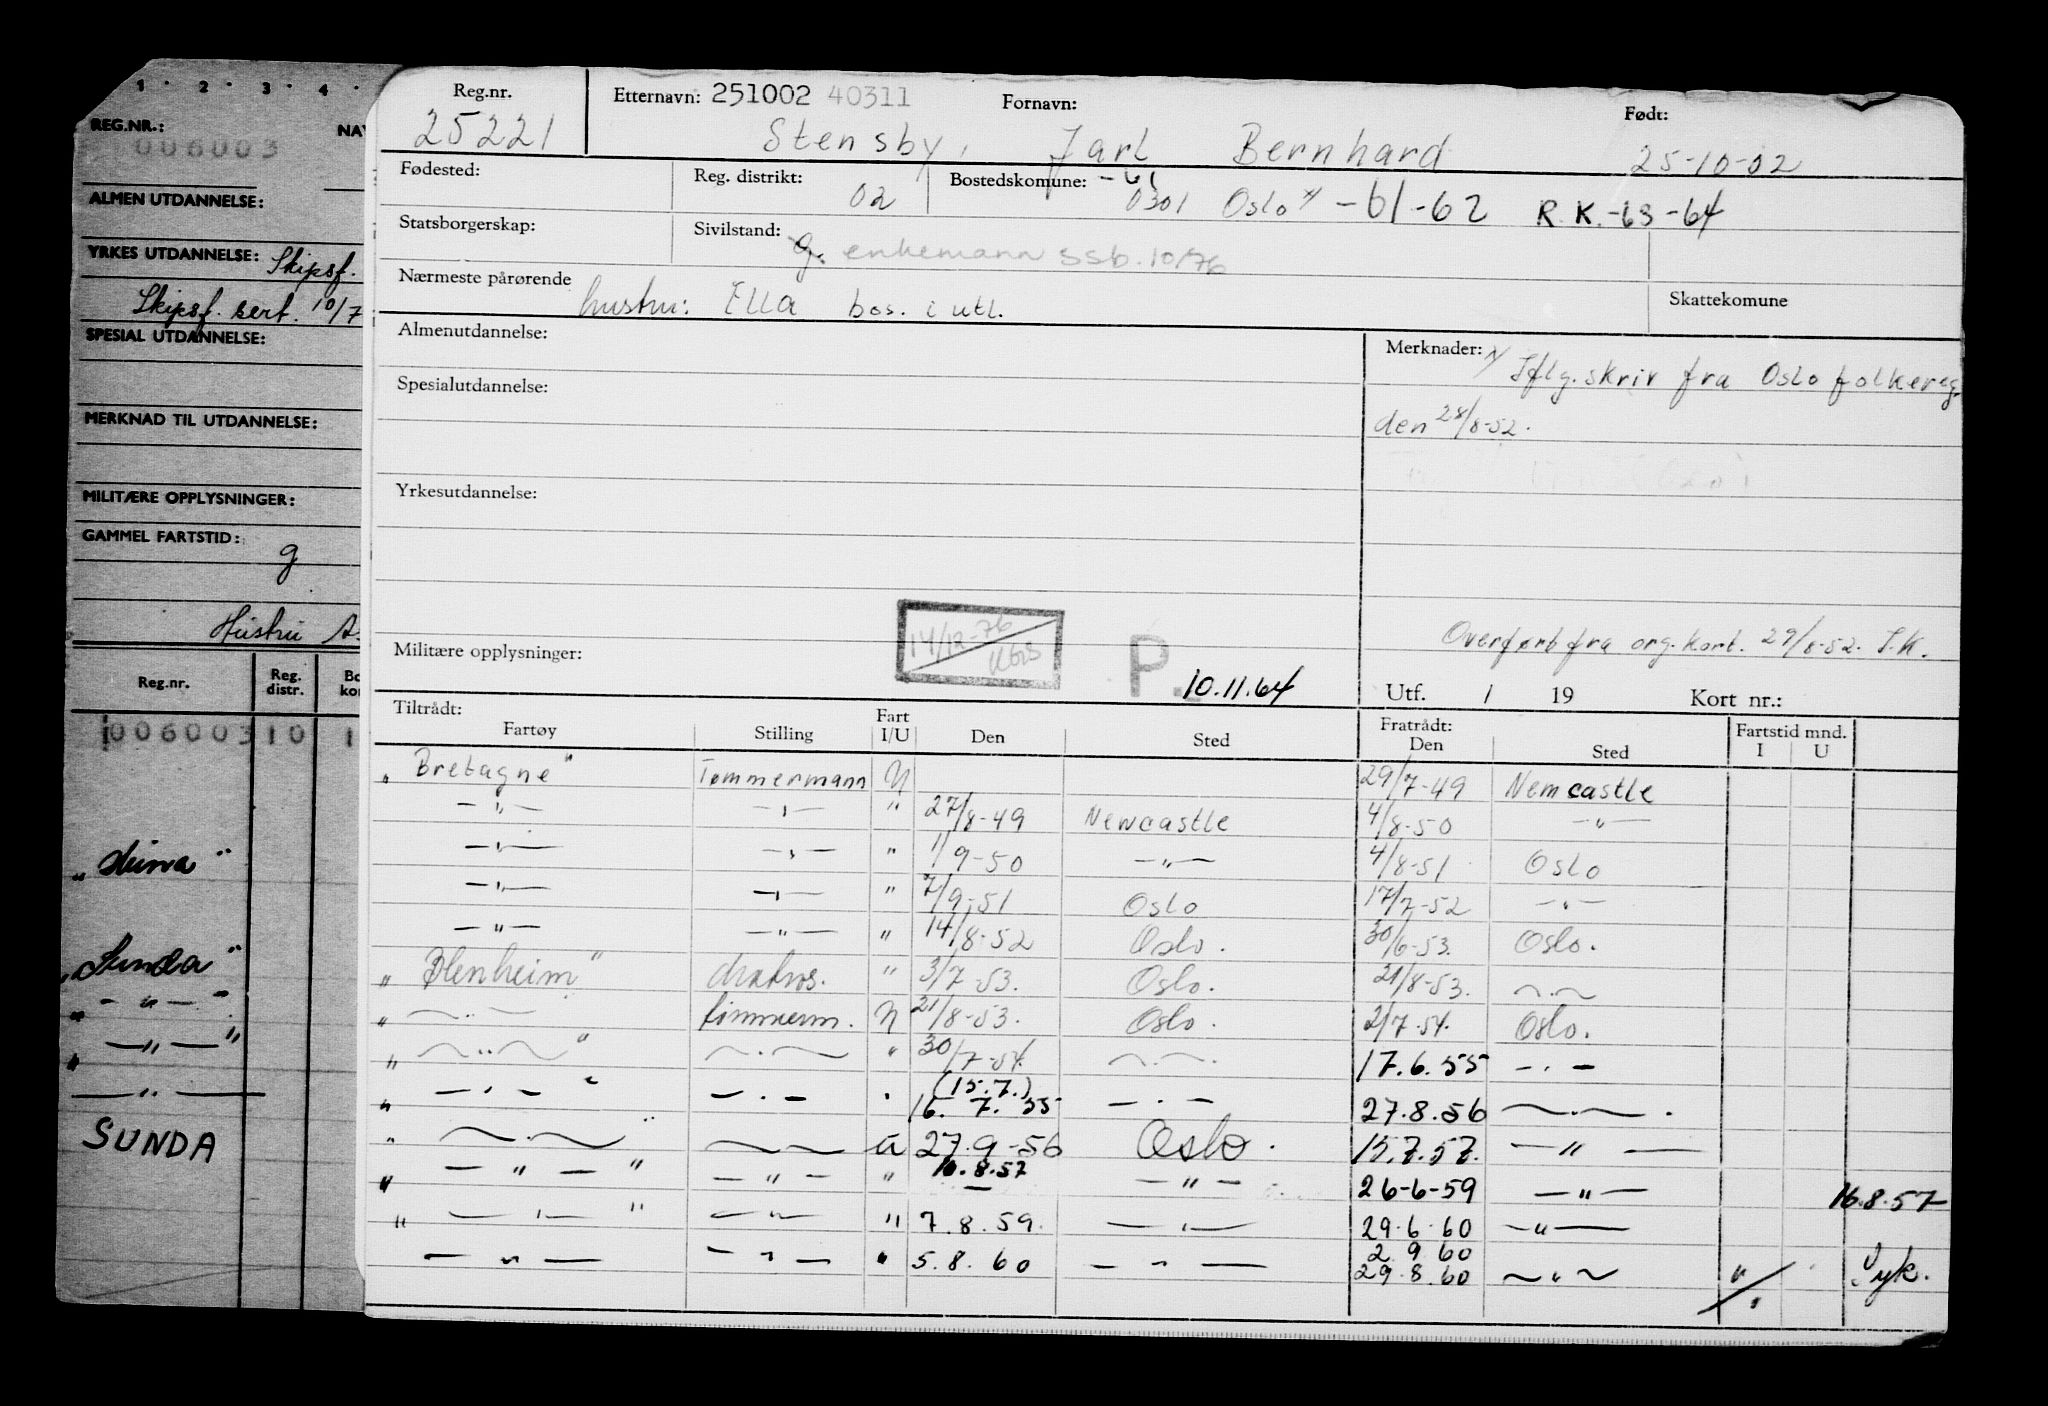 1 · 2 · 3 · 4 ·
REG.NR.:
006003
ALMEN UTDANNELSE:
YRKES UTDANNELSE: Skipsf.
Skipsf. sert. 10/7
SPESIAL UTDANNELSE:
MERKNAD TIL UTDANNELSE:
MILITÆRE OPPLYSNINGER:
GAMMEL FARTSTID:
g
Hustru
Reg.nr. Reg. distr.
006003 10 1
„Sunda"
„ — " — "
„ — " — "
— " —
SUNDA
Reg.nr. Etternavn: 251002 40311 Fornavn: Født:
25221 Stensby, Jarl Bernhard 25-10-02
Fødested: Reg. distrikt: 02 Bostedskommune: -61 0301 Oslo x/ -61-62 R.K.-63-64
Statsborgerskap: Sivilstand: g. enkemann ssb. 10/76
Nærmeste pårørende hustru: Ella bos. i utl. Skattekomune
Almenutdannelse: Merknader: x/ Iflg. skriv fra Oslo folkereg.
Spesialutdannelse: den 28/8-52.
Yrkesutdannelse:
14/12-76
Overført fra org.kort. 29/8-52. S.K.
Militære opplysninger: P. 10.11.64 Utf. / 19 Kort nr.:
Tiltrådt: Fratrådt: Fartstid mnd.
Fartøy Stilling Fart I/U Den Sted Den Sted I U
„Bretagne" Tømmermann N 29/7-49 Newcastle
— " — — " — " 27/8-49 Newcastle 4/8-50 — " —
— " — — " — " 1/9-50 — " — 4/8-51 Oslo
— " — — " — " 7/9-51 Oslo 17/7-52 — " —
— " — — " — " 14/8-52 Oslo. 30/6-53. Oslo.
„Blenheim" Matros. " 3/7-53. Oslo. 21/8-53. — " —
„ — " — tømmerm. N 21/8-53. Oslo. 2/7-54. Oslo.
„ — " — " — " — " 30/7-54. — " — 17.6.55 — " —
„ — " — " — " — " (15.7.) 16.7.55 — " — 27.8.56 — " —
" — " — " — u 27.9-56 Oslo. 15.7.57. — " —
„ — " — " — " — " 10.8.57 — " — 26-6-59 — " — 16.8.57
„ — " — " — " — " 7.8.59. — " — 29.6.60 — " —
— " — — " — " 5.8.60 — " — 2.9.60 29.8.60 — " — " / " Syk.